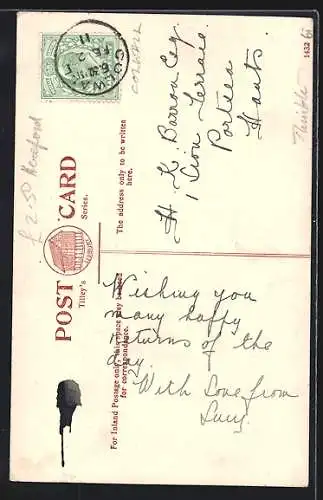 POST CARD
Tilley's Series.
For Inland Postage only, this space may be used
for correspondence.
The address only to be written
here.
Wishing you
many happy
returns of the
day.
With Love from
Lucy.
H. K. Barron Esq.
1 Lion Terrace
Portsea
Hants.
£2.50 Hereford
COLWALL
1432